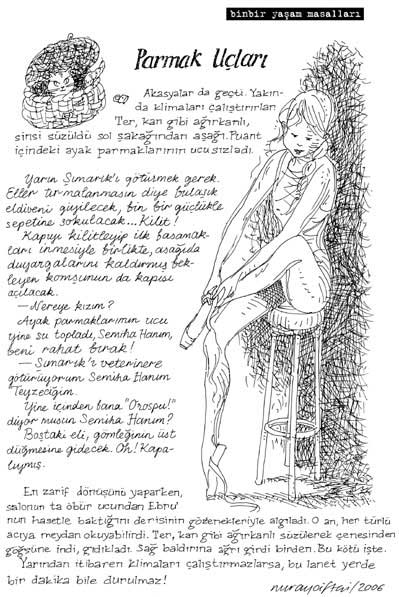 binbir yaşam masalları
Parmak Uçları
Akasyalar da geçti. Yakın-
da klimaları çalıştırırlar.
Ter, kan gibi ağırkanlı,
sinsi süzüldü sol şakağından aşağı. Puant
içindeki ayak parmaklarının ucu sızladı.
Yarın Şımarık'ı götürmek gerek.
Eller tırmalanmasın diye bulaşık
eldiveni giyilecek, bin bir güçlükle
sepetine sokulacak... Kilit!
Kapıyı kilitleyip ilk basamak-
ları inmesiyle birlikte, aşağıda
duyargalarını kaldırmış bek-
leyen komşunun da kapısı
açılacak.
— Nereye kızım?
Ayak parmaklarımın ucu
yine su topladı, Semiha Hanım,
beni rahat bırak!
— Şımarık'ı veterinere
götürüyorum Semiha Hanım
Teyzeciğim.
Yine içinden bana "Orospu!"
diyor musun Semiha Hanım?
Boştaki eli, gömleğinin üst
düğmesine gidecek. Oh! Kapa-
lıymış.
En zarif dönüşünü yaparken,
salonun ta öbür ucundan Ebru'
nun hasetle baktığını derisinin gözenekleriyle algıladı. O an, her türlü
acıya meydan okuyabilirdi. Ter, kan gibi ağırkanlı süzülerek çenesinden
göğsüne indi, gıdıkladı. Sağ baldırına ağrı girdi birden. Bu kötü işte.
Yarından itibaren klimaları çalıştırmazlarsa, bu lanet yerde
bir dakika bile durulmaz!
nurayçiftçi/2006